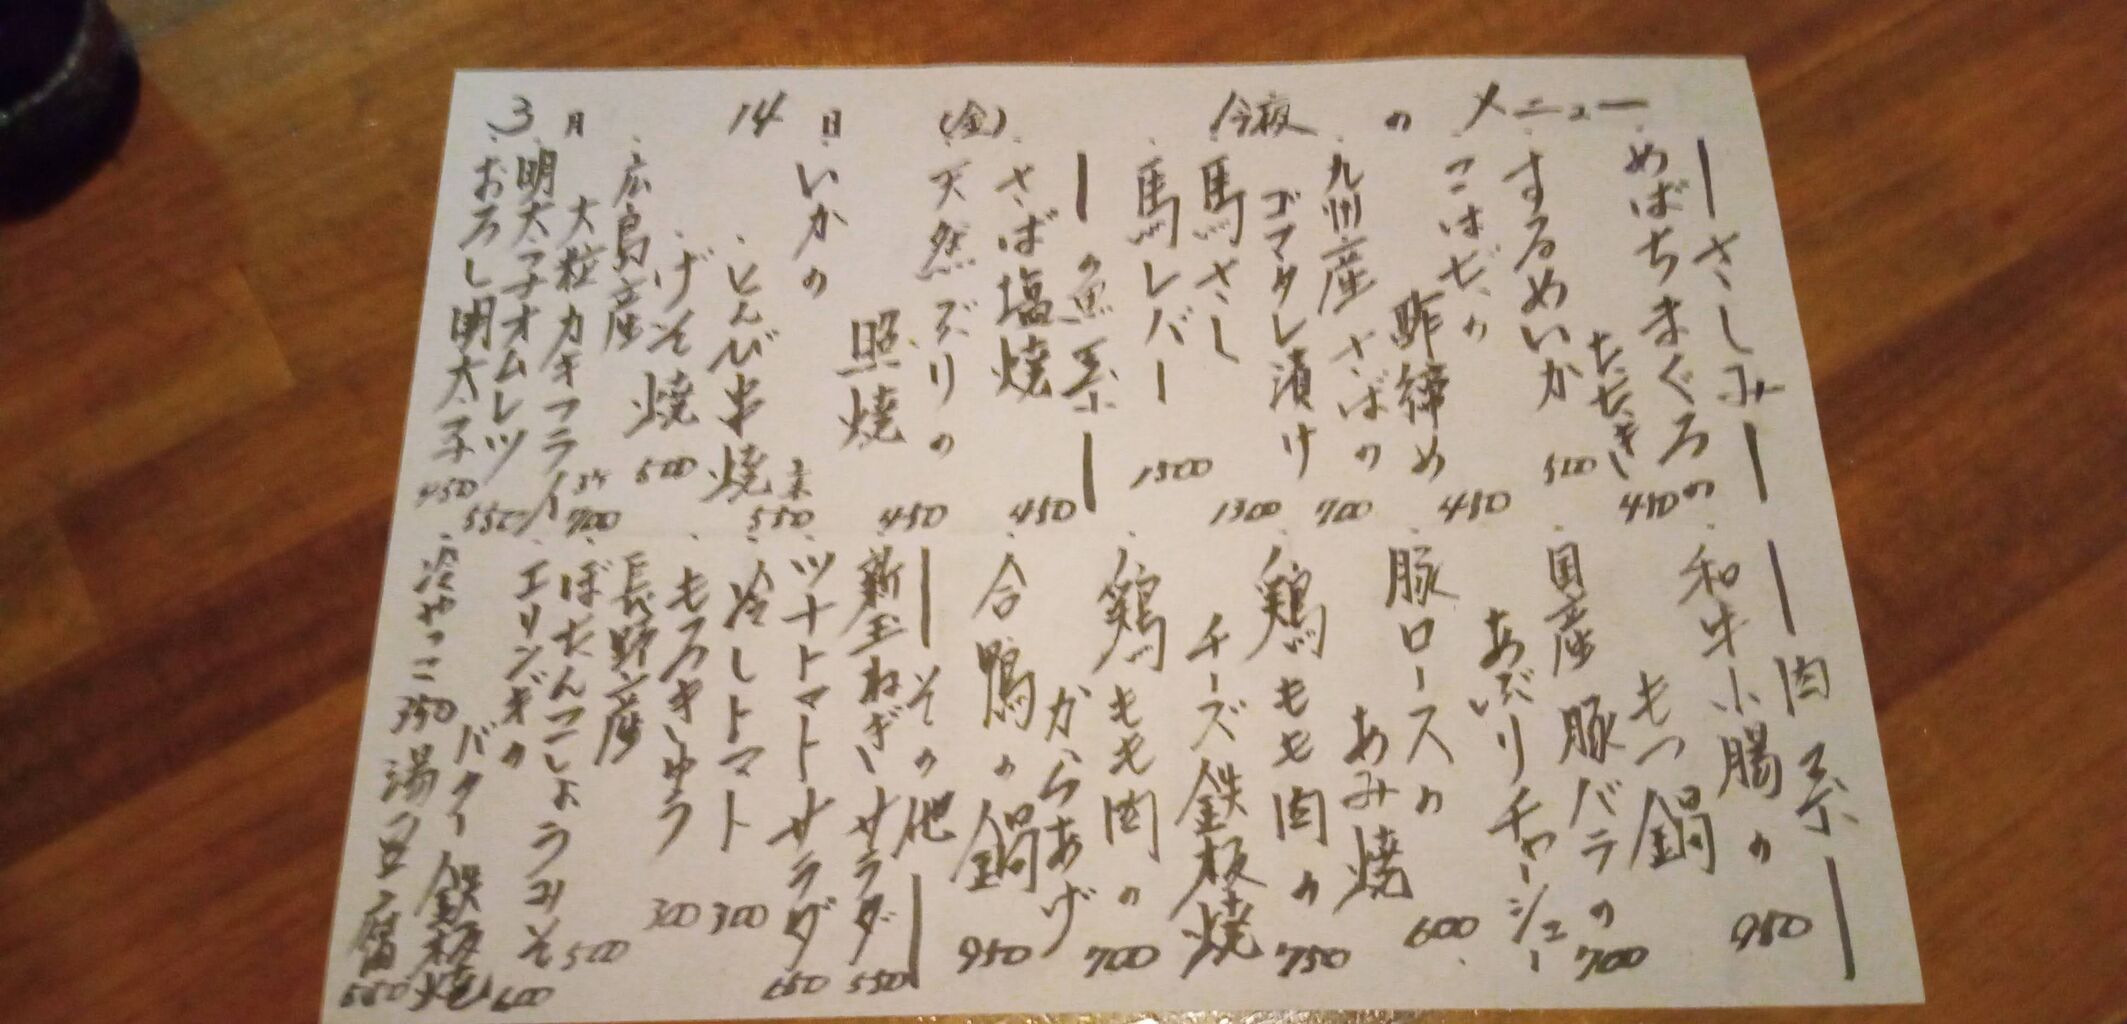 3月 14日 (金) 今夜のメニュー
ーさしみー
めばちまぐろの
たたき 450
するめいか 500
こはだの
酢締め 450
九州産さばの
ゴマダレ漬け 700
馬さし 1300
馬レバー 1300
ーの魚系ー
さば塩焼 450
天然ぶりの
照焼 450
いかの
とんび串焼 2本 550
げそ焼 500
広島産
大粒カキフライ 3ケ 700
明太子オムレツ 550
おろし明太子 450
ー肉系ー
和牛小腸の
もつ鍋 950
国産豚バラの
あぶりチャーシュー 700
豚ロースの
あみ焼 600
鶏もも肉の
チーズ鉄板焼 750
鶏もも肉の
からあげ 700
合鴨の鍋 950
ーその他ー
新玉ねぎサラダ 550
ツナトマトサラダ 650
冷しトマト 300
もろきゅう 300
長野産
ぼたんこしょうみそ 500
エリンギの
バター鉄板焼 600
冷やっこ 350 湯豆腐 550